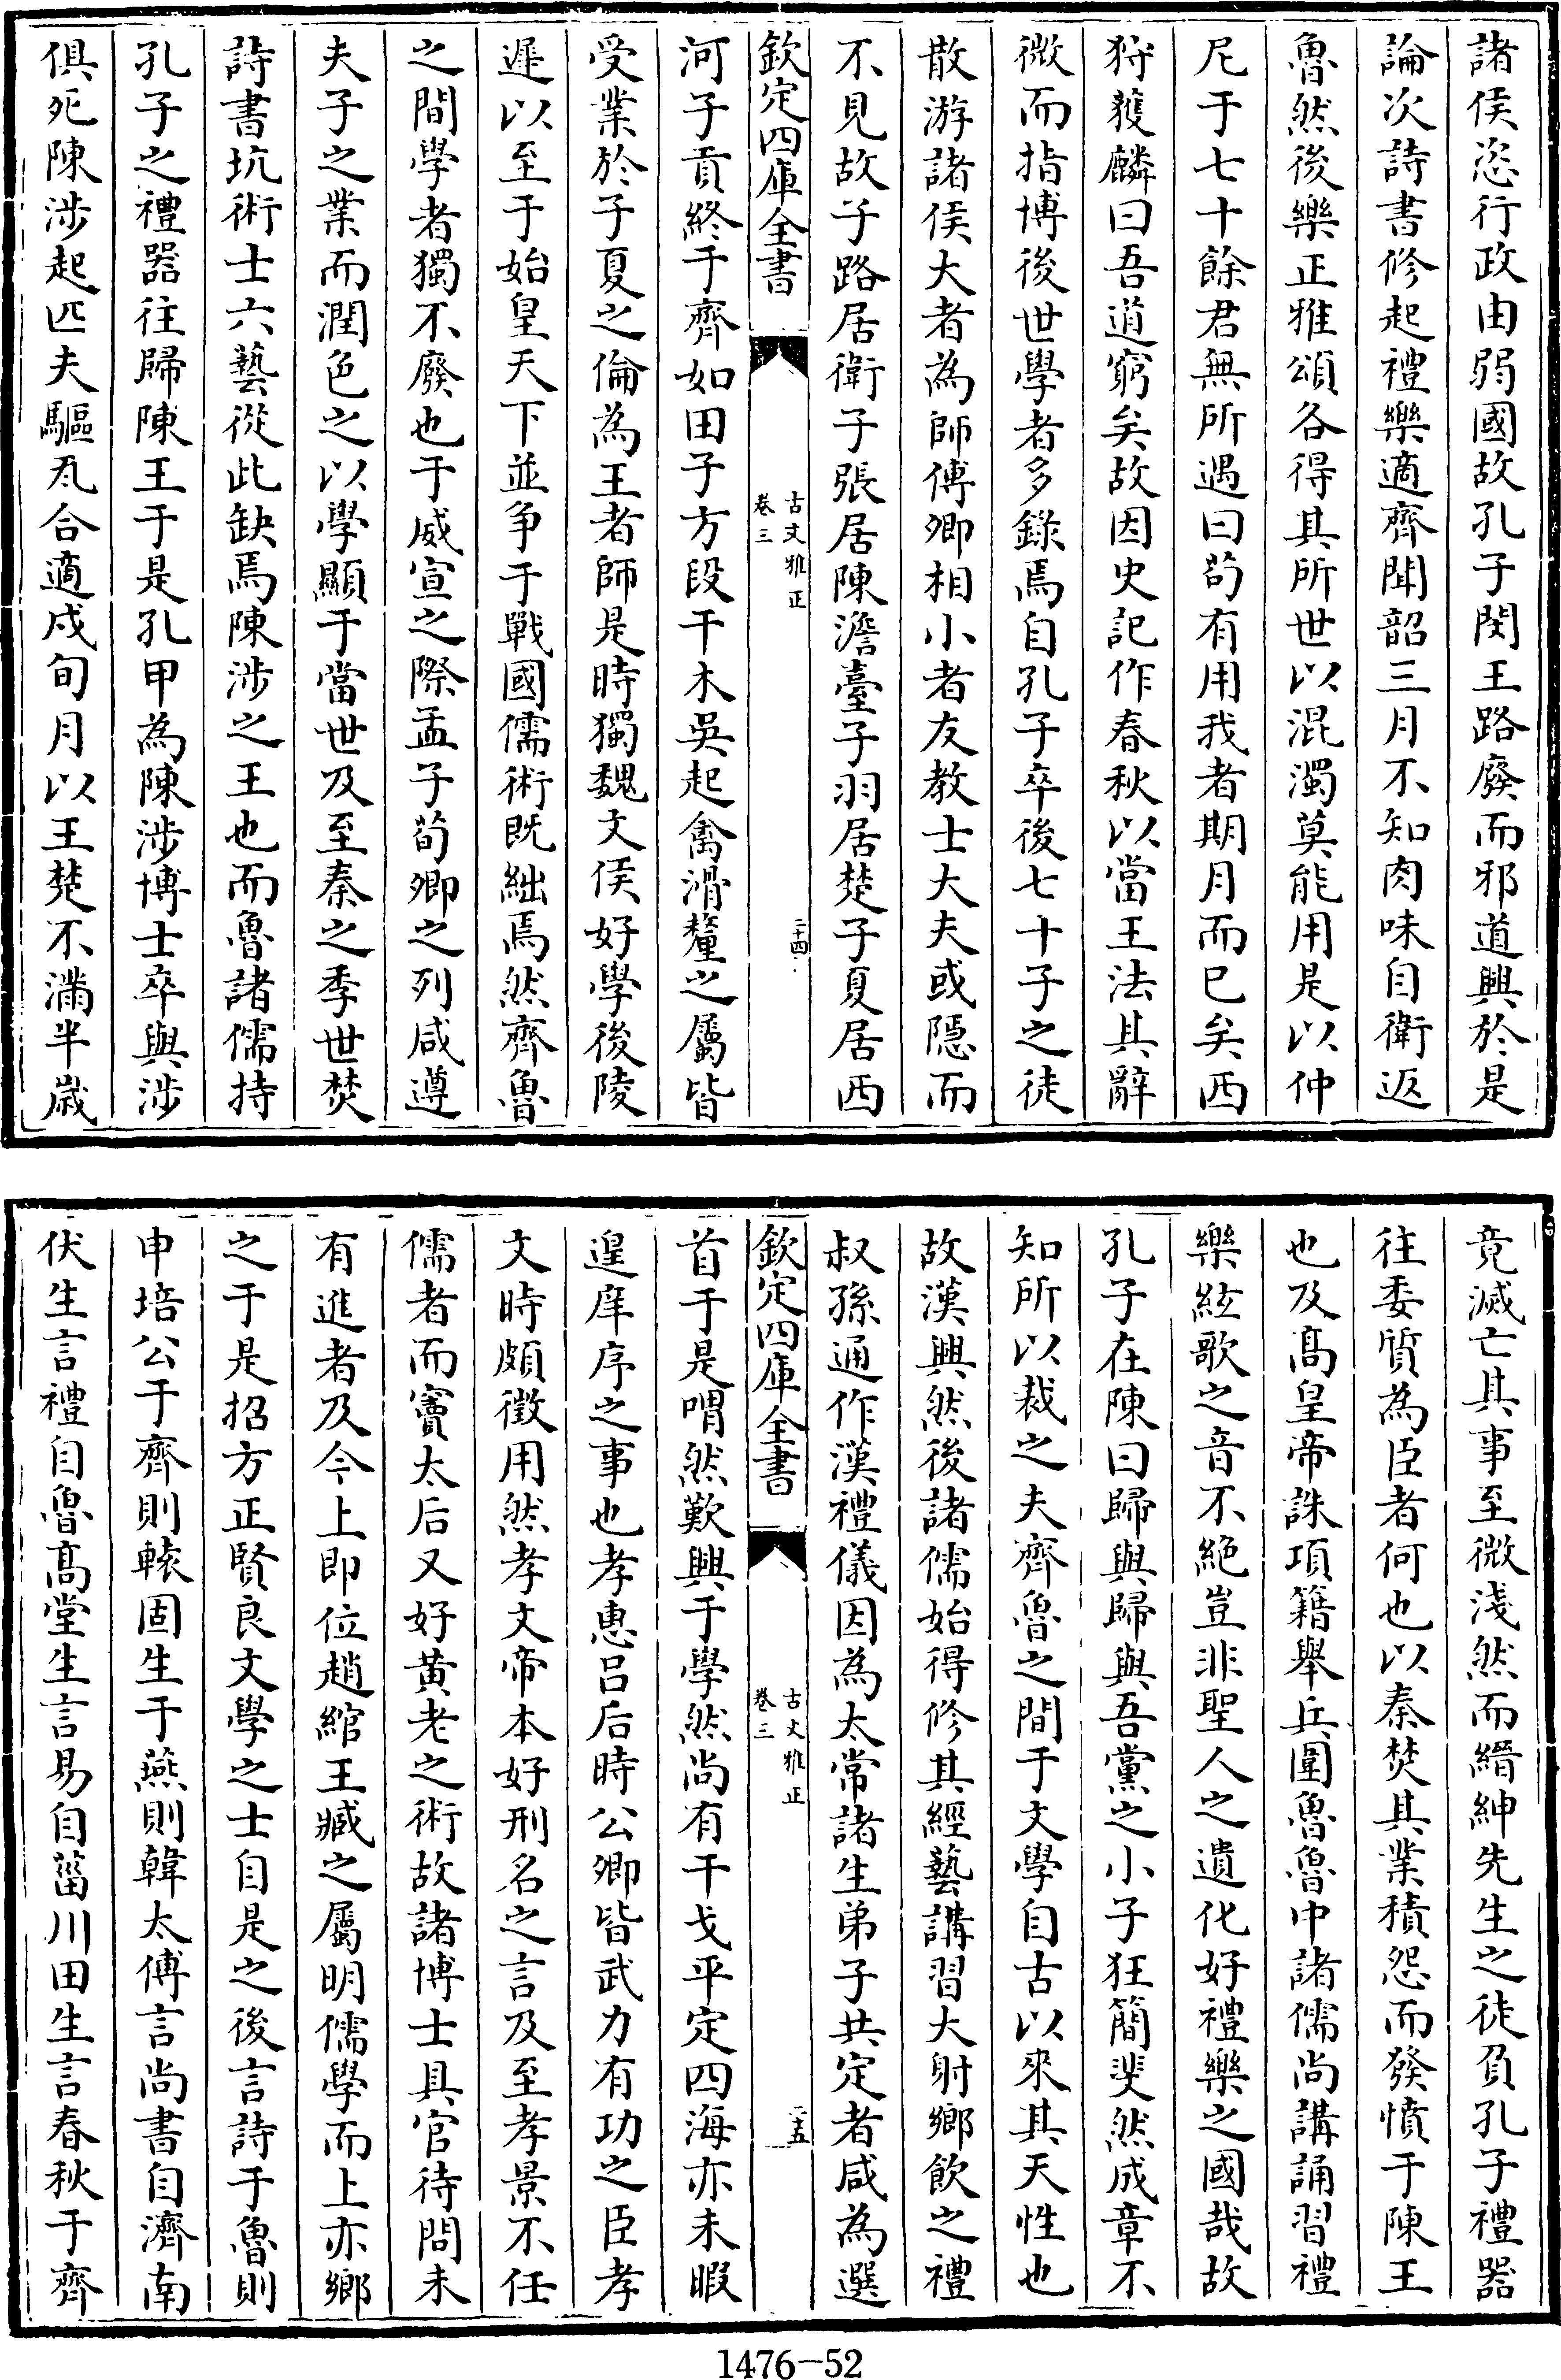 諸侯恣行政由弱國故孔子閔王路廢而邪道興於是
論次詩書修起禮樂適齊聞韶三月不知肉味自衛返
魯然後樂正雅頌各得其所世以混濁莫能用是以仲
尼于七十餘君無所遇曰茍有用我者期月而已矣西
狩獲麟曰吾道窮矣故因史記作春秋以當王法其辭
微而指博後世學者多錄焉自孔子卒後七十子之徒
散游諸侯大者為師傅卿相小者友教士大夫或隱而
不見故子路居衛子張居陳澹臺子羽居楚子夏居西
欽定四庫全書
古文雅正
卷三
二十四
河子貢終于齊如田子方段干木吳起禽滑釐之屬皆
受業於子夏之倫為王者師是時獨魏文侯好學後陵
遲以至于始皇天下並争于戰國儒術既絀焉然齊魯
之間學者獨不廢也于威宣之際孟子荀卿之列咸遵
夫子之業而潤色之以學顯于當世及至秦之季世焚
詩書坑術士六藝從此缺焉陳涉之王也而魯諸儒持
孔子之禮器往歸陳王于是孔甲為陳涉博士卒與涉
俱死陳涉起匹夫驅瓦合適戍旬月以王楚不滿半歲
竟滅亡其事至微淺然而縉紳先生之徒負孔子禮器
往委質為臣者何也以秦焚其業積怨而發憤于陳王
也及髙皇帝誅項籍舉兵圍魯魯中諸儒尚講誦習禮
樂絃歌之音不絕豈非聖人之遺化好禮樂之國哉故
孔子在陳曰歸與歸與吾黨之小子狂簡斐然成章不
知所以裁之夫齊魯之間于文學自古以來其天性也
故漢興然後諸儒始得修其經藝講習大射鄉飲之禮
叔孫通作漢禮儀因為太常諸生弟子共定者咸為選
欽定四庫全書
古文雅正
卷三
二十五
首于是喟然歎興于學然尚有干戈平定四海亦未暇
遑庠序之事也孝惠呂后時公卿皆武力有功之臣孝
文時頗徵用然孝文帝本好刑名之言及至孝景不任
儒者而竇太后又好黄老之術故諸博士具官待問未
有進者及今上即位趙綰王臧之屬明儒學而上亦鄉
之于是招方正賢良文學之士自是之後言詩于魯則
申培公于齊則轅固生于燕則韓太傅言尚書自濟南
伏生言禮自魯髙堂生言易自菑川田生言春秋于齊
1476-52